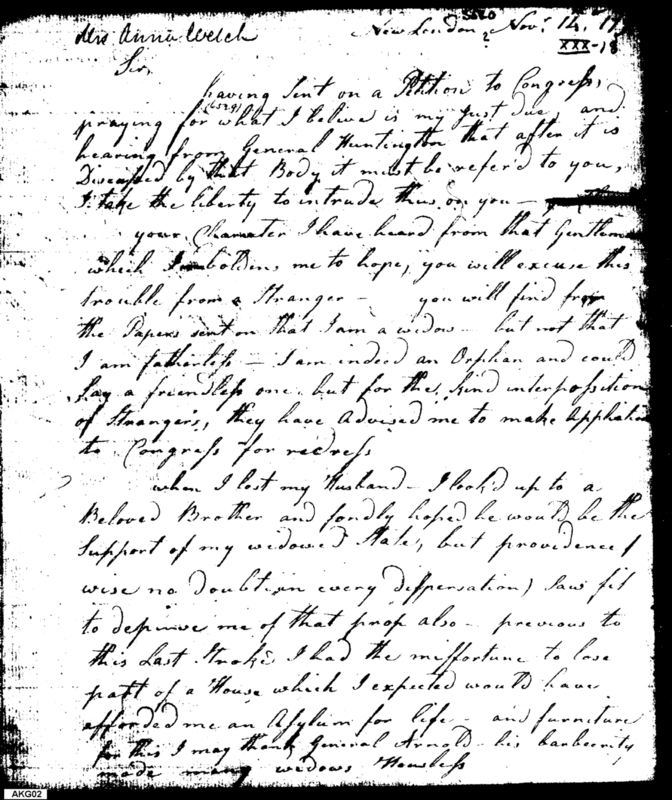 Mrs Anna Welch
5820
New London Novr 14, 17
XXX-18
Sir,
having sent on a Petition to Congress,
praying for what I belive is my Just due, and
hearing from General Huntington that after it is
Discussed by that Body it must be refer'd to you,
I take the liberty to intrude thus on you —
your Character I have heard from that Gentlem
which Imboldens me to hope, you will excuse this
trouble from a Stranger — you will find from
the Papers sent on that I am a widow — but not that
I am fatherless — I am indeed an Orphan and could
Say a friendless one but for the kind interpossition
of Strangers, they have Advised me to make Application
to Congress for redress
when I lost my Husband — I look'd up to a
Beloved Brother and fondly hoped he would be the
Support of my widowed State, but providence (
wise no doubt in every dispersation) saw fit
to deprive me of that prop also — previous to
this Last Stroke I had the missfortune to lose
part of a House which I expected would have
afforded me an Asylum for life — and furniture
for this I may thank General Arnold — his barbearity
made many widows Houseless
AKG02